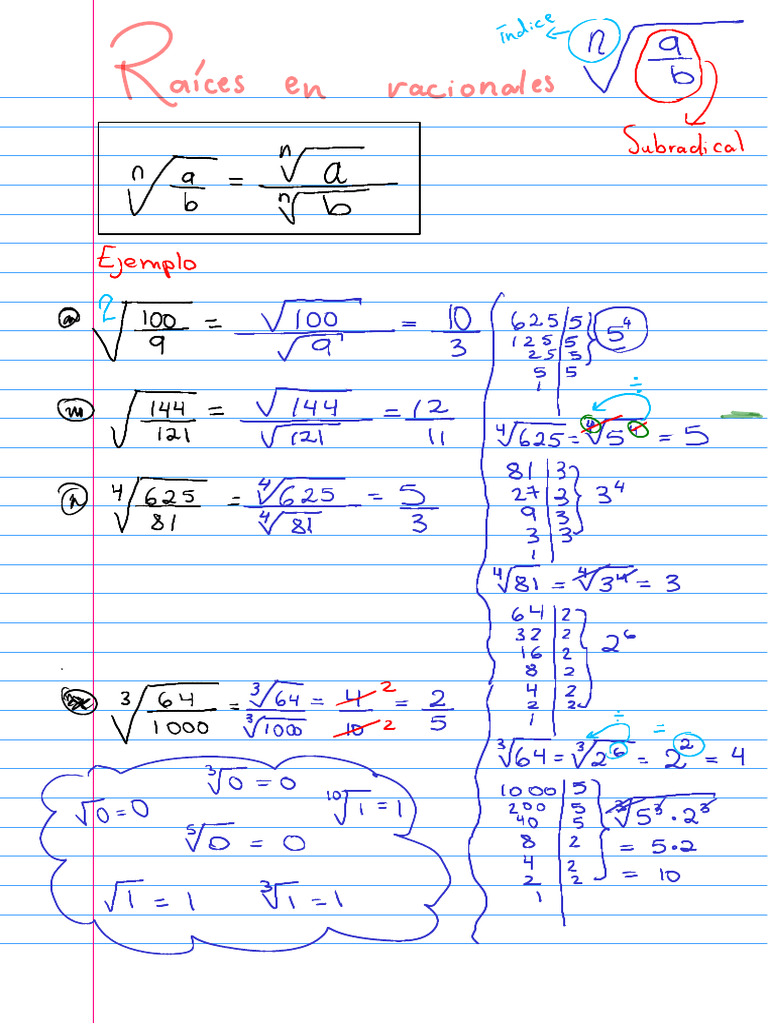 Raíces en racionales
índice n√(a/b)
Subradical
n√(a/b) = n√a / n√b
Ejemplo
2√(100/9) = √100 / √9 = 10/3
√(144/121) = √144 / √121 = 12/11
4√(625/81) = 4√625 / 4√81 = 5/3
3√(64/1000) = 3√64 / 3√1000 = 4/10 2 2 = 2/5
3√0 = 0
√0 = 0
10√1 = 1
5√0 = 0
√1 = 1
3√1 = 1
625 | 5
125 | 5
25 | 5
5 | 5
1 |
5^4
÷
4√625 = 4√5^4 = 5
81 | 3
27 | 3
9 | 3
3 | 3
1 |
3^4
4√81 = 4√3^4 = 3
64 | 2
32 | 2
16 | 2
8 | 2
4 | 2
2 | 2
1 |
2^6
÷ =
3√64 = 3√2^6 = 2^2 = 4
1000 | 5
200 | 5
40 | 5
8 | 2
4 | 2
2 | 2
1 |
3√5^3 · 2^3
= 5·2
= 10